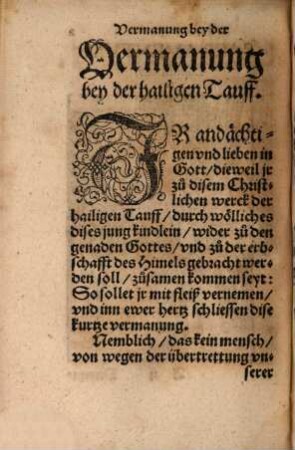 Vermanung bey der
Vermanung
bey der hailigen Tauff.
IR andächti-
gen vnd lieben in
Gott/dieweil jr
zů disem Christ-
lichen werck der
hailigen Tauff/durch wölliches
dises jung kindlein/wider zů den
genaden Gottes/vnd zů der erb-
schafft des Himels gebracht wer-
den soll/zůsamen kommen seyt:
So sollet jr mit fleiß vernemen/
vnd inn ewer hertz schliessen dise
kurtze vermanung.
Nemblich/das kein mensch/
von wegen der übertrettung vn-
serer